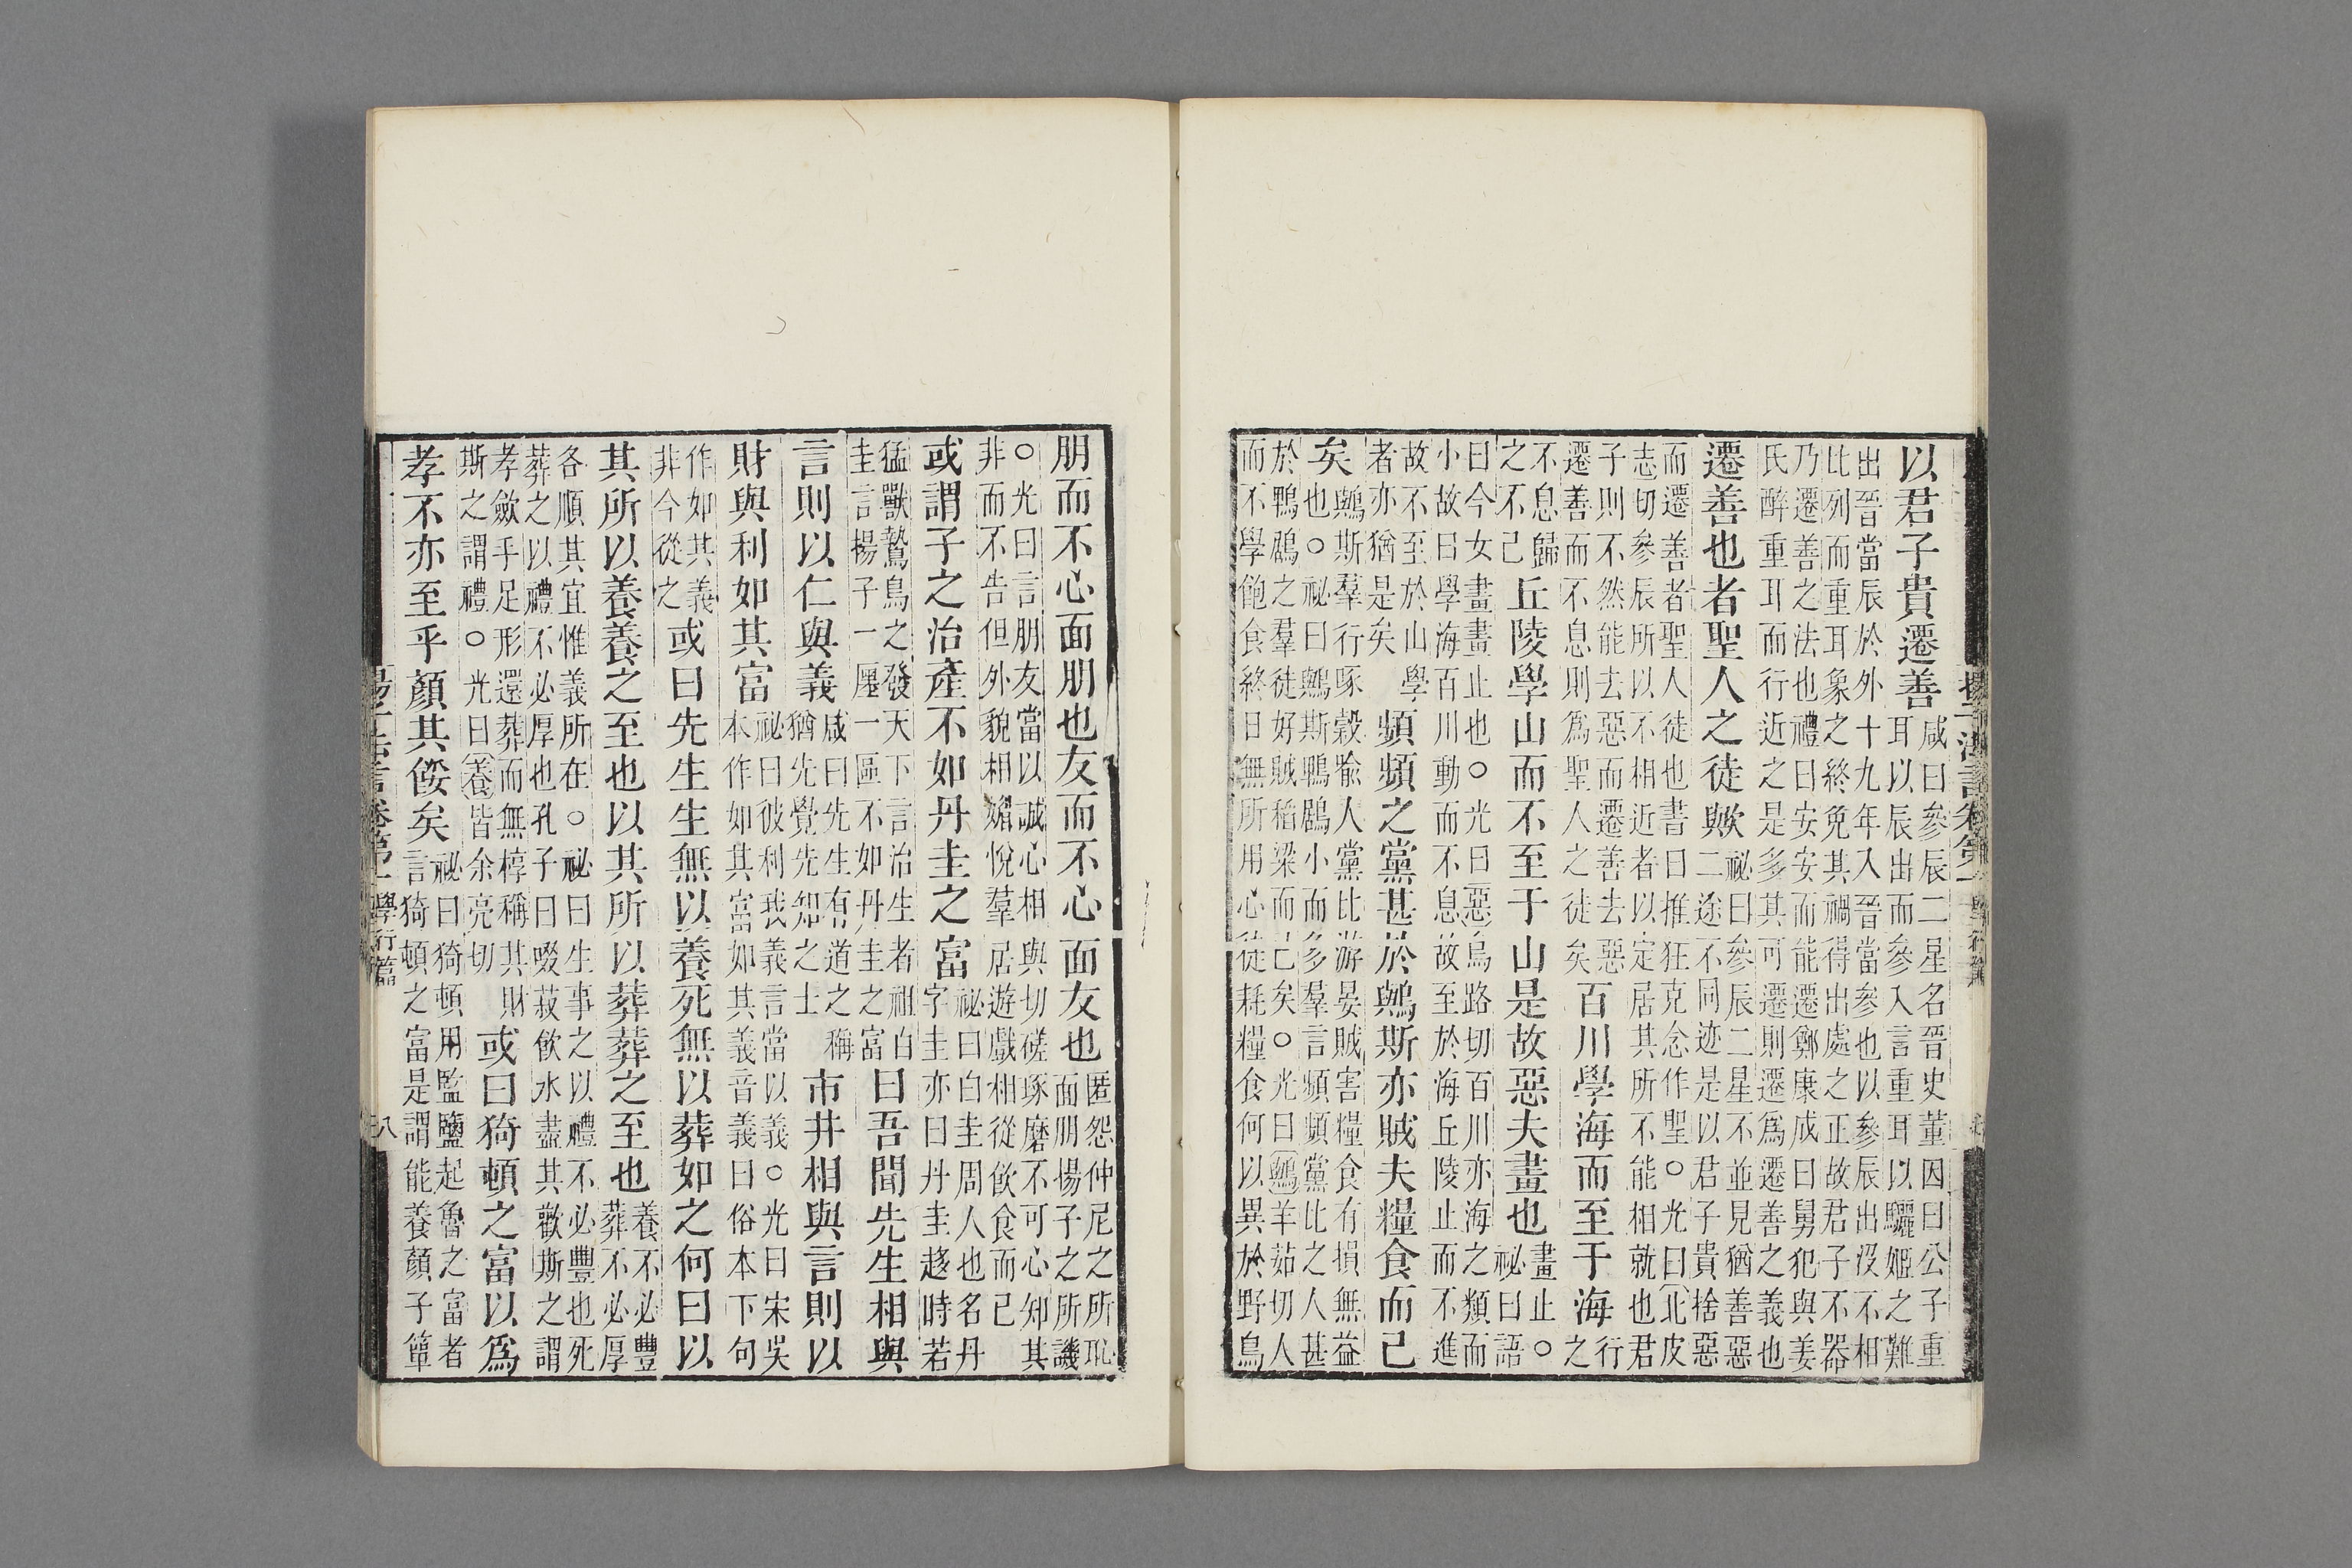 以君子貴遷善
咸曰參辰二星名晉史董因曰公子重
耳以辰出而參入言重耳以驪姬之難
出晉當辰於外十九年入晉當參也以參辰出沒不相
比列而重耳象之終免其禍得出處之正故君子不器
乃遷善之法也禮曰安安而能遷鄭康成曰舅犯與姜
氏醉重耳而行近之是多其可遷則遷爲遷善之義也
遷善也者聖人之徒歟
祕曰參辰二星不並見猶善惡
二途不同迹是以君子貴捨惡
而遷善者聖人徒也書曰推狂克念作聖○光曰北皮
志切參辰所以不相近者以定居其所不能相就也君
子則不然能去惡而遷善去惡
遷善而不息則爲聖人之徒矣
百川學海而至于海
行
之
不息歸
之不已
丘陵學山而不至于山是故惡夫畫也
畫止○
祕曰語
曰今女畫畫止也○光曰惡烏路切百川亦海之類而
小故曰學海百川動而不息故至於海丘陵止而不進
故不至於山學
者亦猶是矣
頻頻之黨甚於鷽斯亦賊夫糧食而已
矣
鷽斯羣行啄穀喻人黨比游晏賊害糧食有損無益
也○祕曰鷽斯鴨鶋小而多羣言頻頻黨比之人甚
於鴨鶋之羣徒好賊稻梁而已矣○光曰鷽羊茹切人
而不學飽食終日無所用心徒耗糧食何以異於野鳥
朋而不心面朋也友而不心面友也
匿怨仲尼之所恥
面朋揚子之所譏
○光曰言朋友當以誠心相與切磋琢磨不可心知其
非而不告但外貌相媚悅羣居遊戲相從飲食而已
或謂子之治產不如丹圭之富
祕曰白圭周人也名丹
字圭亦曰丹圭趍時若
猛獸鷙鳥之發天下言治生者祖白
圭言揚子一廛一區不如丹圭之富
曰吾聞先生相與
言則以仁與義
咸曰先生有道之稱
猶先覺先知之士
市井相與言則以
財與利如其富
祕曰彼利我義言當以義○光曰宋吳
本作如其富如其義音義曰俗本下句
作如其義
非今從之
或曰先生生無以養死無以葬如之何曰以
其所以養養之至也以其所以葬葬之至也
養不必豐
葬不必厚
各順其宜惟義所在○祕曰生事之以禮不必豐也死
葬之以禮不必厚也孔子曰啜菽飲水盡其歡斯之謂
孝斂乎足形還葬而無椁稱其財
斯之謂禮○光曰養皆余亮切
或曰猗頓之富以爲
孝不亦至乎顏其餒矣
祕曰猗頓用監鹽起魯之富者
言猗頓之富是謂能養顏子簞
學行篇
八